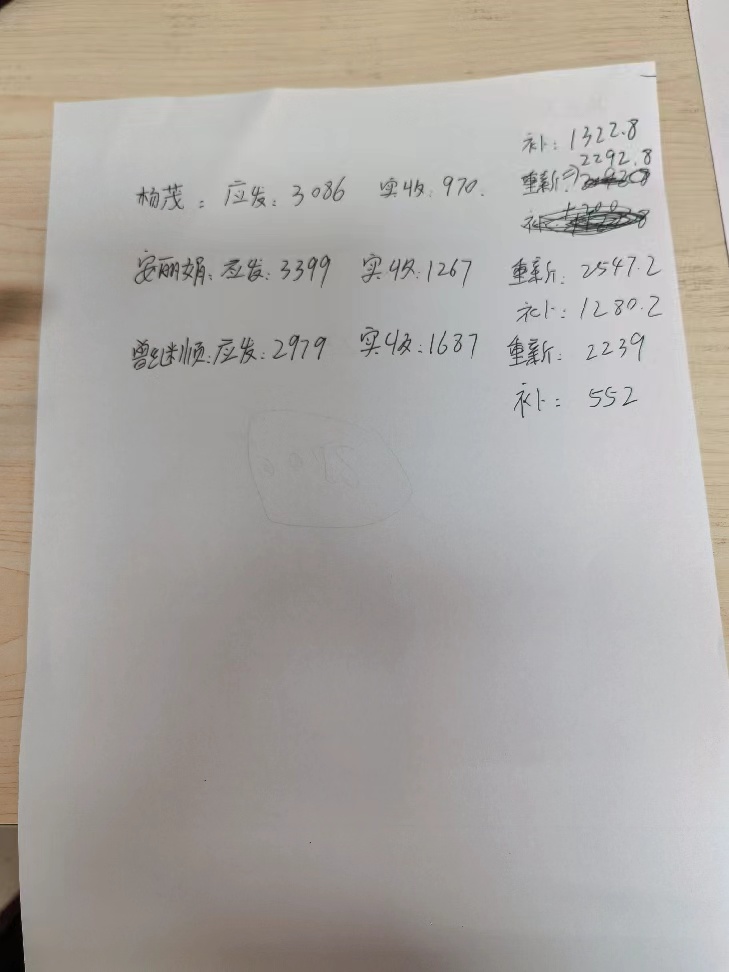 补：1322.8
2292.8
杨茂：应发：3086 实收：970. 重新：
补：
安丽娟：应发：3399 实收：1267 重新：2547.2
补：1280.2
曾继顺：应发：2979 实收：1687 重新：2239
补：552